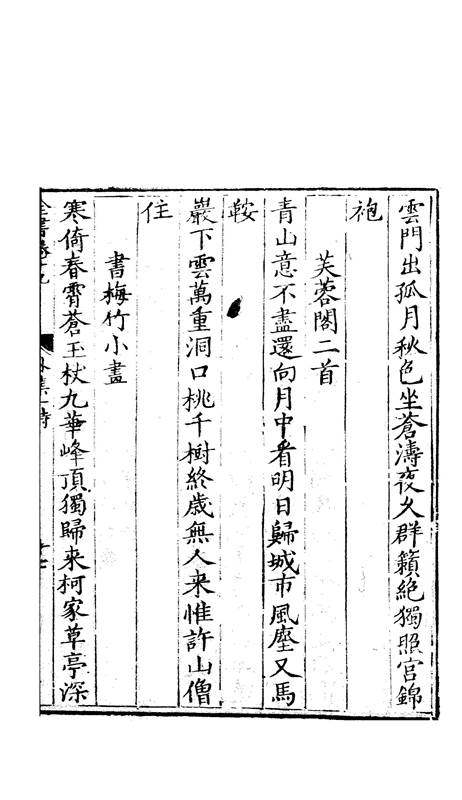 雲門出孤月秋色坐蒼濤夜久群籟絶獨照宫錦
袍
芙蓉閣二首
青山意不盡還向月中看明日歸城市風塵又馬
鞍
巖下雲萬重洞口桃千樹終歳無人来惟許山僧
住
書梅竹小畫
寒倚春霄蒼玉杖九華峰頂獨歸来柯家草亭深